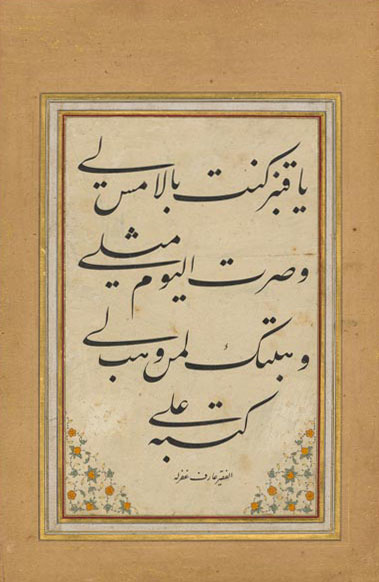 يا قنبر كنت بالامس لي
وصرت اليوم مثلي
وهبتك لمن وهبك لي
كتبه علي
الفقير عارف غفر له